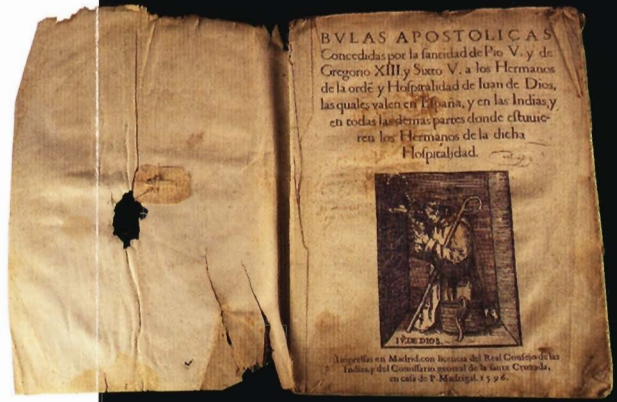 BVLAS APOSTOLICAS
Concedidas por la santidad de Pio V. y de
Gregorio XIII. y Sixto V. a los Hermanos
de la ordẽ y Hospitalidad de Iuan de Dios,
las quales valen en España, y en las Indias, y
en todas las demas partes donde estuuie-
ren los Hermanos de la dicha
Hospitalidad.
IV. DE DIOS.
Impressas en Madrid, con licencia del Real Consejo de las
Indias, y del Comissario general de la santa Cruzada,
en casa de P. Madrigal. 1596.